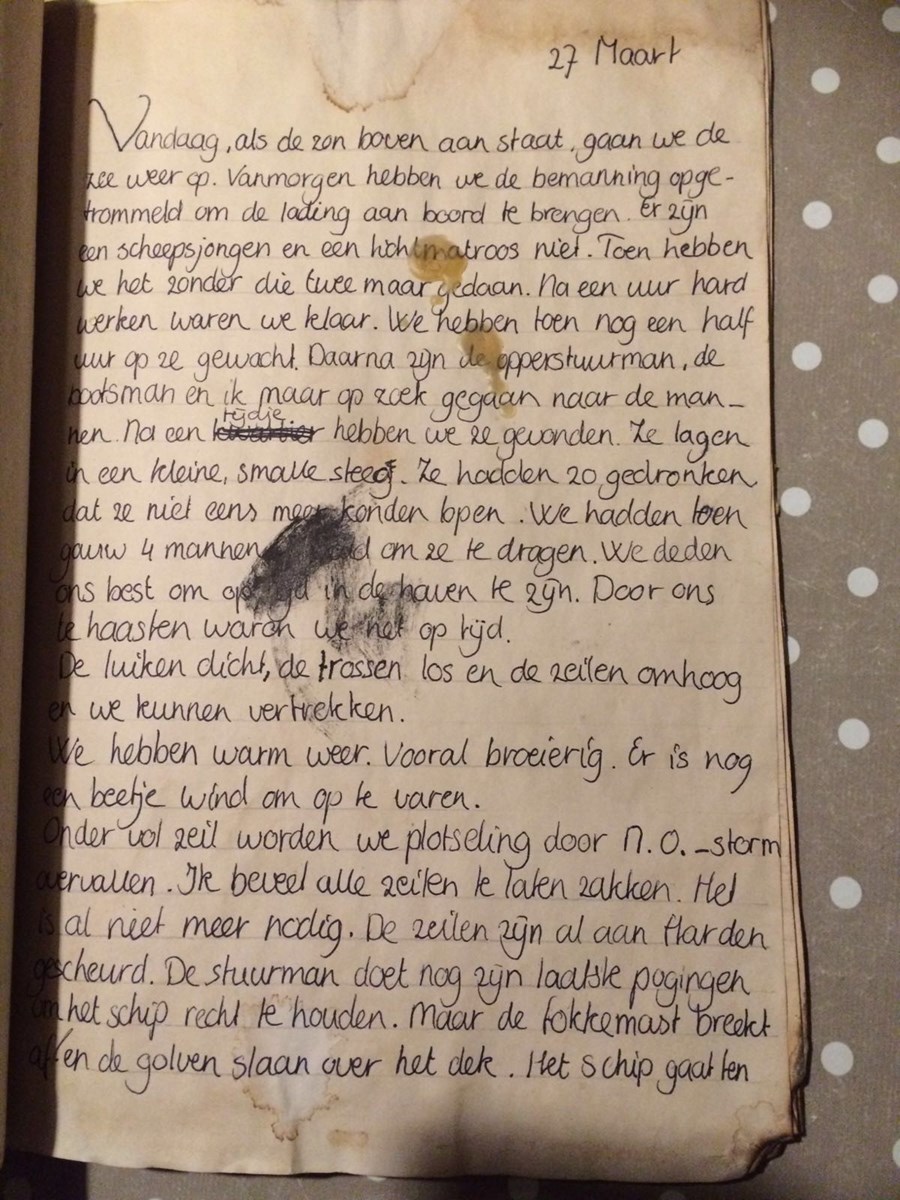 27 Maart
Vandaag, als de zon boven aan staat, gaan we de
zee weer op. Vanmorgen hebben we de bemanning opge-
trommeld om de lading aan boord te brengen. Er zijn
een scheepsjongen en een lichtmatroos niet. Toen hebben
we het zonder die twee maar gedaan. Na een uur hard
werken waren we klaar. We hebben toen nog een half
uur op ze gewacht. Daarna zijn de opperstuurman, de
bootsman en ik maar op zoek gegaan naar de man-
nen. Na een tijdje hebben we ze gevonden. Ze lagen
in een kleine, smalle steeg. Ze hadden zo gedronken
dat ze niet eens meer konden lopen. We hadden toen
gauw 4 mannen om ze te dragen. We deden
ons best om op tijd in de haven te zijn. Door ons
te haasten waren we net op tijd.
De luiken dicht, de trossen los en de zeilen omhoog
en we kunnen vertrekken.
We hebben warm weer. Vooral broeierig. Er is nog
een beetje wind om op te varen.
Onder vol zeil worden we plotseling door N.O.-storm
overvallen. Ik beveel alle zeilen te laten zakken. Het
is al niet meer nodig. De zeilen zijn al aan flarden
gescheurd. De stuurman doet nog zijn laatste pogingen
om het schip recht te houden. Maar de fokkemast breekt
af en de golven slaan over het dek. Het schip gaat ten